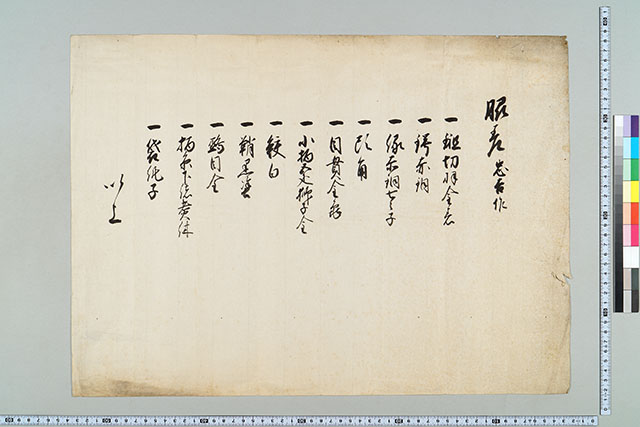 脇差 忠吉作
一 鎺切羽金
一 鍔赤銅
一 縁赤銅七子
一 頭角
一 目貫金
一 小柄 獅子金
一 鮫白
一 鞘黒塗
一 鵐目金
一 柄糸下緒
一 袋純子
以上